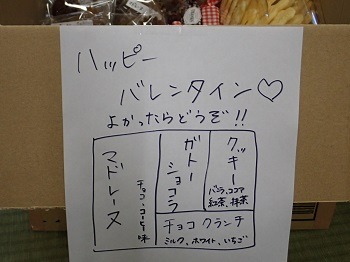 ハッピー
バレンタイン♡
よかったらどうぞ!!
マドレーヌ
チョコ・コーヒー味
ガトー
ショコラ
クッキー
バニラ、ココア
紅茶、抹茶
チョコクランチ
ミルク、ホワイト、いちご